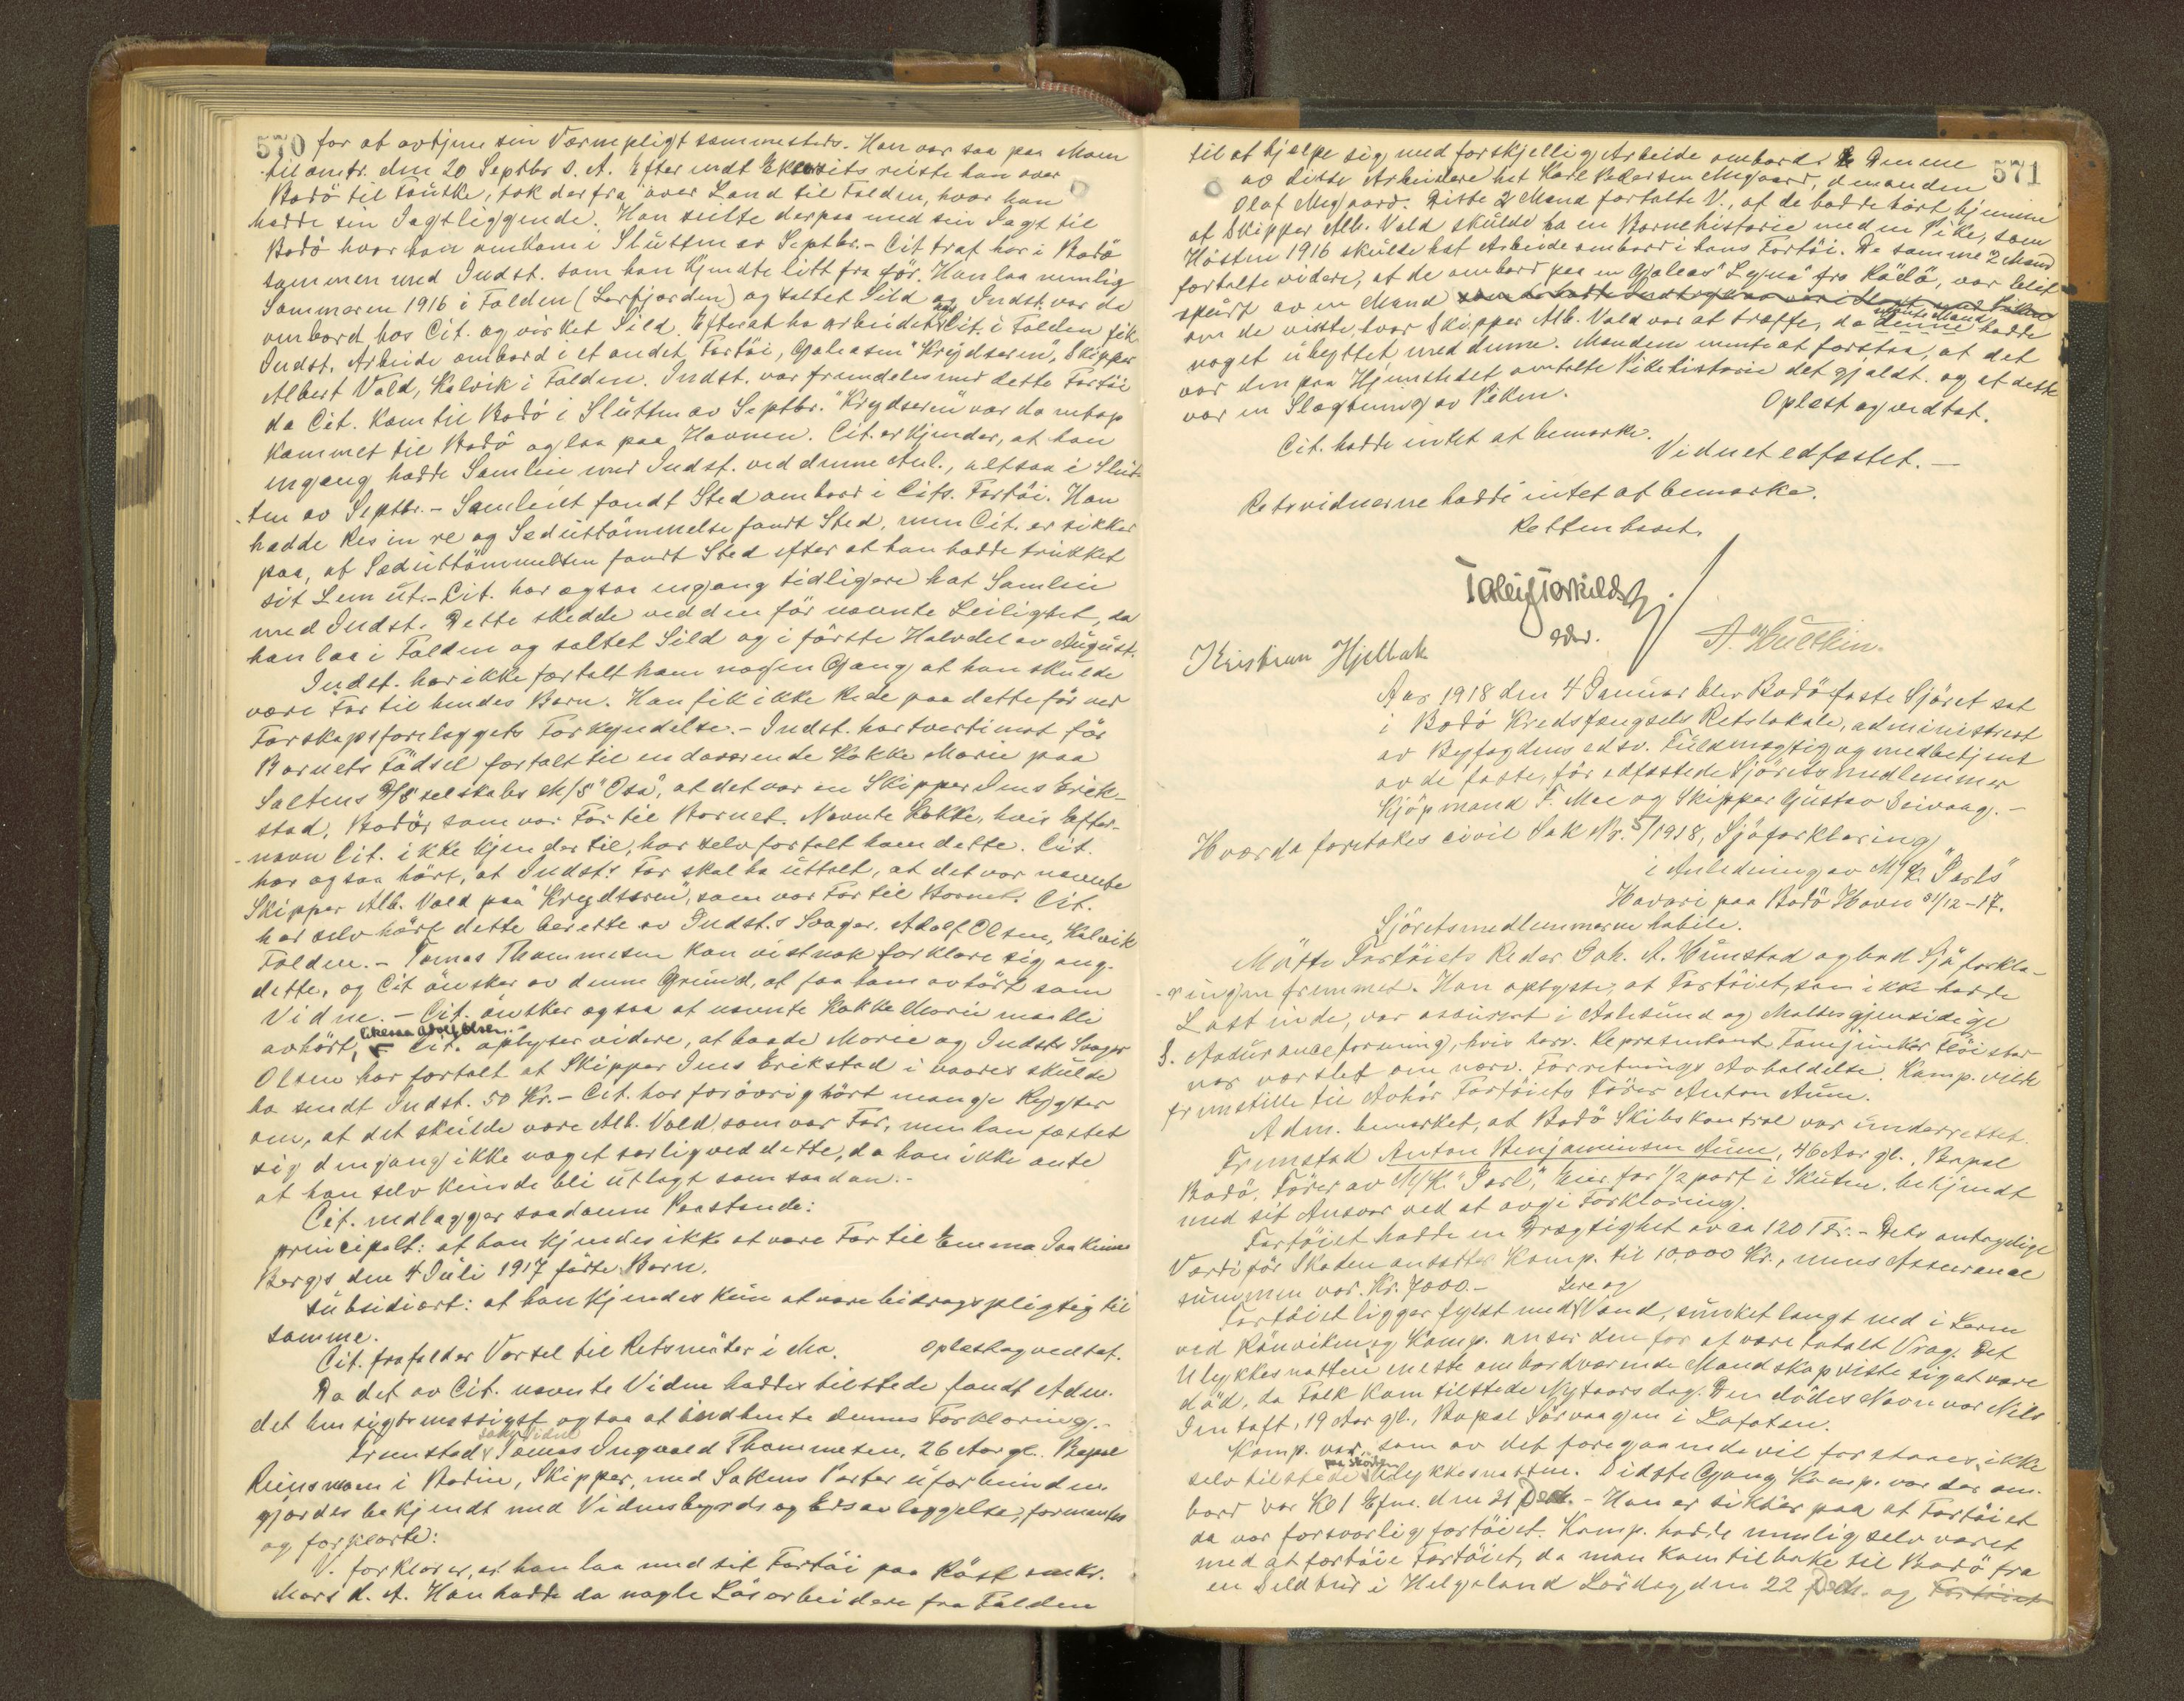 570 for at avtjene sin Værnepligt sammesteds. Han var saa paa Moen
til omtr. den 20 Septbr s. A. Efter endt Eksersits reiste han over
Bodö til Fauske, tok derfra over Land til Folden, hvor han
hadde sin Jagt liggende. Han seilte derpaa med sin Jagt til
Bodö hvor han ankom i Slutten av Septbr. - Cit traf her i Bodö
sammen med Indst. som han kjendte litt fra för. Han laa nemlig
Sommeren 1916 i Folden (Lerfjorden) og saltet Sild og Indst. var da
ombord hos Cit. og virket Sild. Efterat ha arbeidet hos Cit. i Folden fik
Indst. Arbeide ombord i et andet Fartöi, Galeasen "Krydseren", Skipper
Albert Vold, Kalvik i Folden. Indst. var fremdeles med dette Fartöi
da Cit. kom til Bodö i Slutten av Septbr. "Krydseren" var da netop
kommet til Bodö og laa paa Havnen. Cit. erkjender, at han
engang hadde Samleie med Indst. ved denne Anl., altsaa i Slut-
ten av Septbr. - Samleiet fandt Sted ombord i Cits. Fartöi. Han
hadde Res in re og Sæduttömmelse fandt Sted, men Cit. er sikker
paa, at Sæduttömmelsen fandt Sted efter at han hadde trukket
sit Lem ut. - Cit. har ogsaa engang tidligere hat Samleie
med Indst. Dette skedde ved den för nævnte Leilighet, da
han laa i Folden og saltet Sild og i förste Halvdel av August.
Indst. har ikke fortalt ham nogen Gang at han skulde
være Far til hendes Barn. Han fik ikke Rede paa dette för ved
Farskapsforelæggets Forkyndelse. - Indst. har tvertimot för
Barnets Födsel fortalt til en daværende Kokke Marie paa
Saltens D/S selskabs M/S "Osa", at det var en Skipper Jens Erik-
stad, Bodö, som var Far til Barnet. Nævnte Kokke, hvis Efter-
navn Cit. ikke kjender til, har selv fortalt ham dette. Cit.
har ogsaa hört, at Indst.s Far skal ha uttalt, at det var nævnte
Skipper Alb. Vold paa "Krydseren", som var Far til Barnet. Cit.
har selv hört dette berette av Indst.s Svoger. Adolf Olsen, Kalvik
Folden. - Tomas Thommesen kan vistnok forklare sig ang.
dette, og Cit önsker av denne Grund, at faa ham avhört som
Vidne. - Cit. önsker ogsaa at nævnte Kokke Marie maa bli
avhört, likesaa Adolf Olsen. - Cit. oplyser videre, at baade Marie og Indsts Svoger
Olsen har fortalt at Skipper Jens Erikstad i vaares skulde
ha sendt Indst. 50 Kr. - Cit. har forövrig hört mange Rygter
om, at det skulde være Alb. Vold som var Far, men han fæstet
sig dengang ikke noget særlig ved dette, da han ikke ante
at han selv kunde bli utlagt som saadan. -
Cit. nedlægger saadanne Paastande:
principalt: at han kjendes ikke at være Far til Emma Joakime
Bergs den 4 Juli 1917 födte Barn.
subsidiært: at han kjendes kun at være bidragspligtig til
samme.
Cit. frafalder Varsel til Retsmöter i Mo. Oplæst og vedtat.
Da det av Cit. nævnte Vidne hadde tilstede fandt Adm.
det hensigtsmæssigst ogsaa at indhente dennes Forklaring. -
Fremstod som Vidne Tomas Ingvald Thommesen, 26 Aar gl. Bopæl
i Bodin, Skipper, med Sakens Parter uforbunden
gjordes bekjendt med Vidnesbyrds og Edsavlæggelse, formantes
og forklarte:
V. forklarer, at han laa med sit Fartöi paa Röst omkr.
Mars d. A. Han hadde da nogle Lösarbeidere fra Folden
571
til at hjælpe sig med forskjellig Arbeide ombord. Den ene
av disse Arbeidere het Karl Pedersen Mygaard, den anden
Olaf Mygaard. Disse 2 Mand fortalte V., at de hadde hört hjemme
at Skipper Alb. Vold skulde ha en Barnehistorie med en Pike, som
Hösten 1916 skulde hat Arbeide ombord i hans Fartöi. De samme 2 Mand
fortalte videre, at de ombord paa en Galeas "Lyna" fra Rödö, var blit
spurt av en Mand
om de visste, hvor Skipper Alb. Vold var at træffe, da nævnte Mand denne hadde
noget ubyttet med denne. Mandene mente at forstaa, at det
var den paa Hjemstedet omtalte Pikehistorie det gjaldt. og at dette
var en Slægtning av Piken. Oplæst og vedtat.
Cit. hadde intet at bemærke. Vidnet edfæstet. -
Retsvidnerne hadde intet at bemærke.
Retten hævet.
Kristian Hjelbak
Aar 1918 den 4 Januar blev Bodö faste Sjöret sat
i Bodö Kredsfængsels Retslokale, administrert
av Byfogdens edsv. Fuldmægtig og medbetjent
av de faste, för edfæstede Sjöretsmedlemmer
Kjöpmand F. Moe og Skipper Gustav Seivaag. -
Hvorda foretokes civil Sak Nr. 5/1918, Sjöforklaring
i Anledning av M/K. "Parls"
Havari paa Bodö Havn 31/12-17.
Sjöretsmedlemmerne habile.
Mötte Fartöiets Reder Joh. A. Hunstad og bad Sjöforkla-
ringen fremmet. Han oplyste, at Fartöiet, som ikke hadde
Last inde, var assurert i Aalesund og Moldes gjensidige
S. Assuranceforening, hvis herv. Repræsentant
var varslet om nærv. Forretnings Avholdelse. Komp. vilde
fremstille til Avhör Fartöiets Förer Anton Aune.
Adm. bemerket, at Bodö Skibskontrol var underrettet.
Fremstod Anton Benjaminsen Aune, 46 Aar gl., Bopæl
Bodö, Förer av M/K. "Parl", Eier for 1/2 part i Skuten, bekjendt
med sit Ansvar ved at avgi Forklaring.
Fartöiet hadde en Drægtighet av ca 120 Tdr. - Dets antagelige
Værdi för Skaden ansætter Komp. til 10.000 Kr., mens Assurance
summen var Kr. 7000. -
Fartöiet ligger fyldt med Lere og Vand, sunket langt ned i Leren
ved Rönvikens og Komp. anser den for at være totalt Vrag. Det
Ulykkesnatten eneste ombordværende Mandskap viste sig at være
död, da Folk kom tilstede Nytaarsdag. Den dödes Navn var Nils
Jentoft, 19 Aar gl., Bopæl Sörvaagen i Lofoten.
Komp. var, som av det foregaaende vil forstaaes, ikke
selv tilstede paa Sköiten Ulykkesnatten. Sidste Gang Komp. var der om-
bord var Kl 1 Efm. den 31 Decb. - Han er sikker paa at Fartöiet
da var forsvarlig fortöiet. Komp. hadde nemlig selv været
med at fortöie Fartöiet, da man kom tilbake til Bodö fra
en Sildtur i Helgeland Lördag den 22 Decb. og Fartöiet